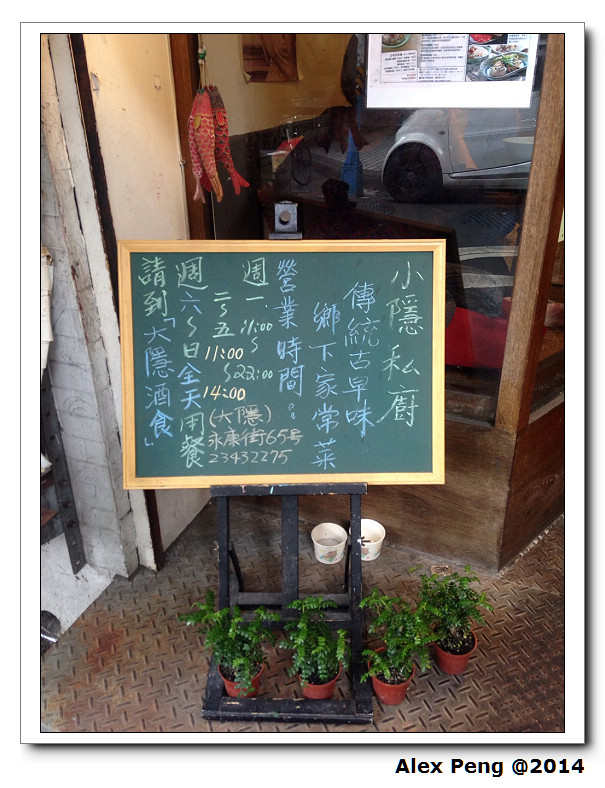 小隱私廚
傳統古早味
鄉下家常菜
營業時間:
週一. 11:00～22:00
二～五 11:00～14:00
週六～日全天用餐
請到「大隱酒食」
(大隱)
永康街65号
23432275
Alex Peng @2014